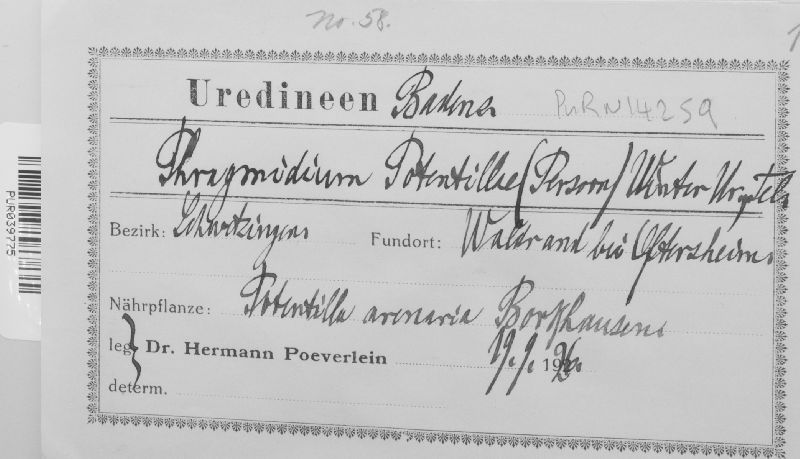 No. 58.
Uredineen Badens PURN14259
Phragmidium Potentillae (Persoon) Winter Ur. Tel.
Bezirk: Schwetzingen Fundort: Waldrand bei Oftersheim.
Nährpflanze: Potentilla arenaria Borkhausen.
leg. Dr. Hermann Poeverlein 19. 9. 1926.
determ.
PUR0397725